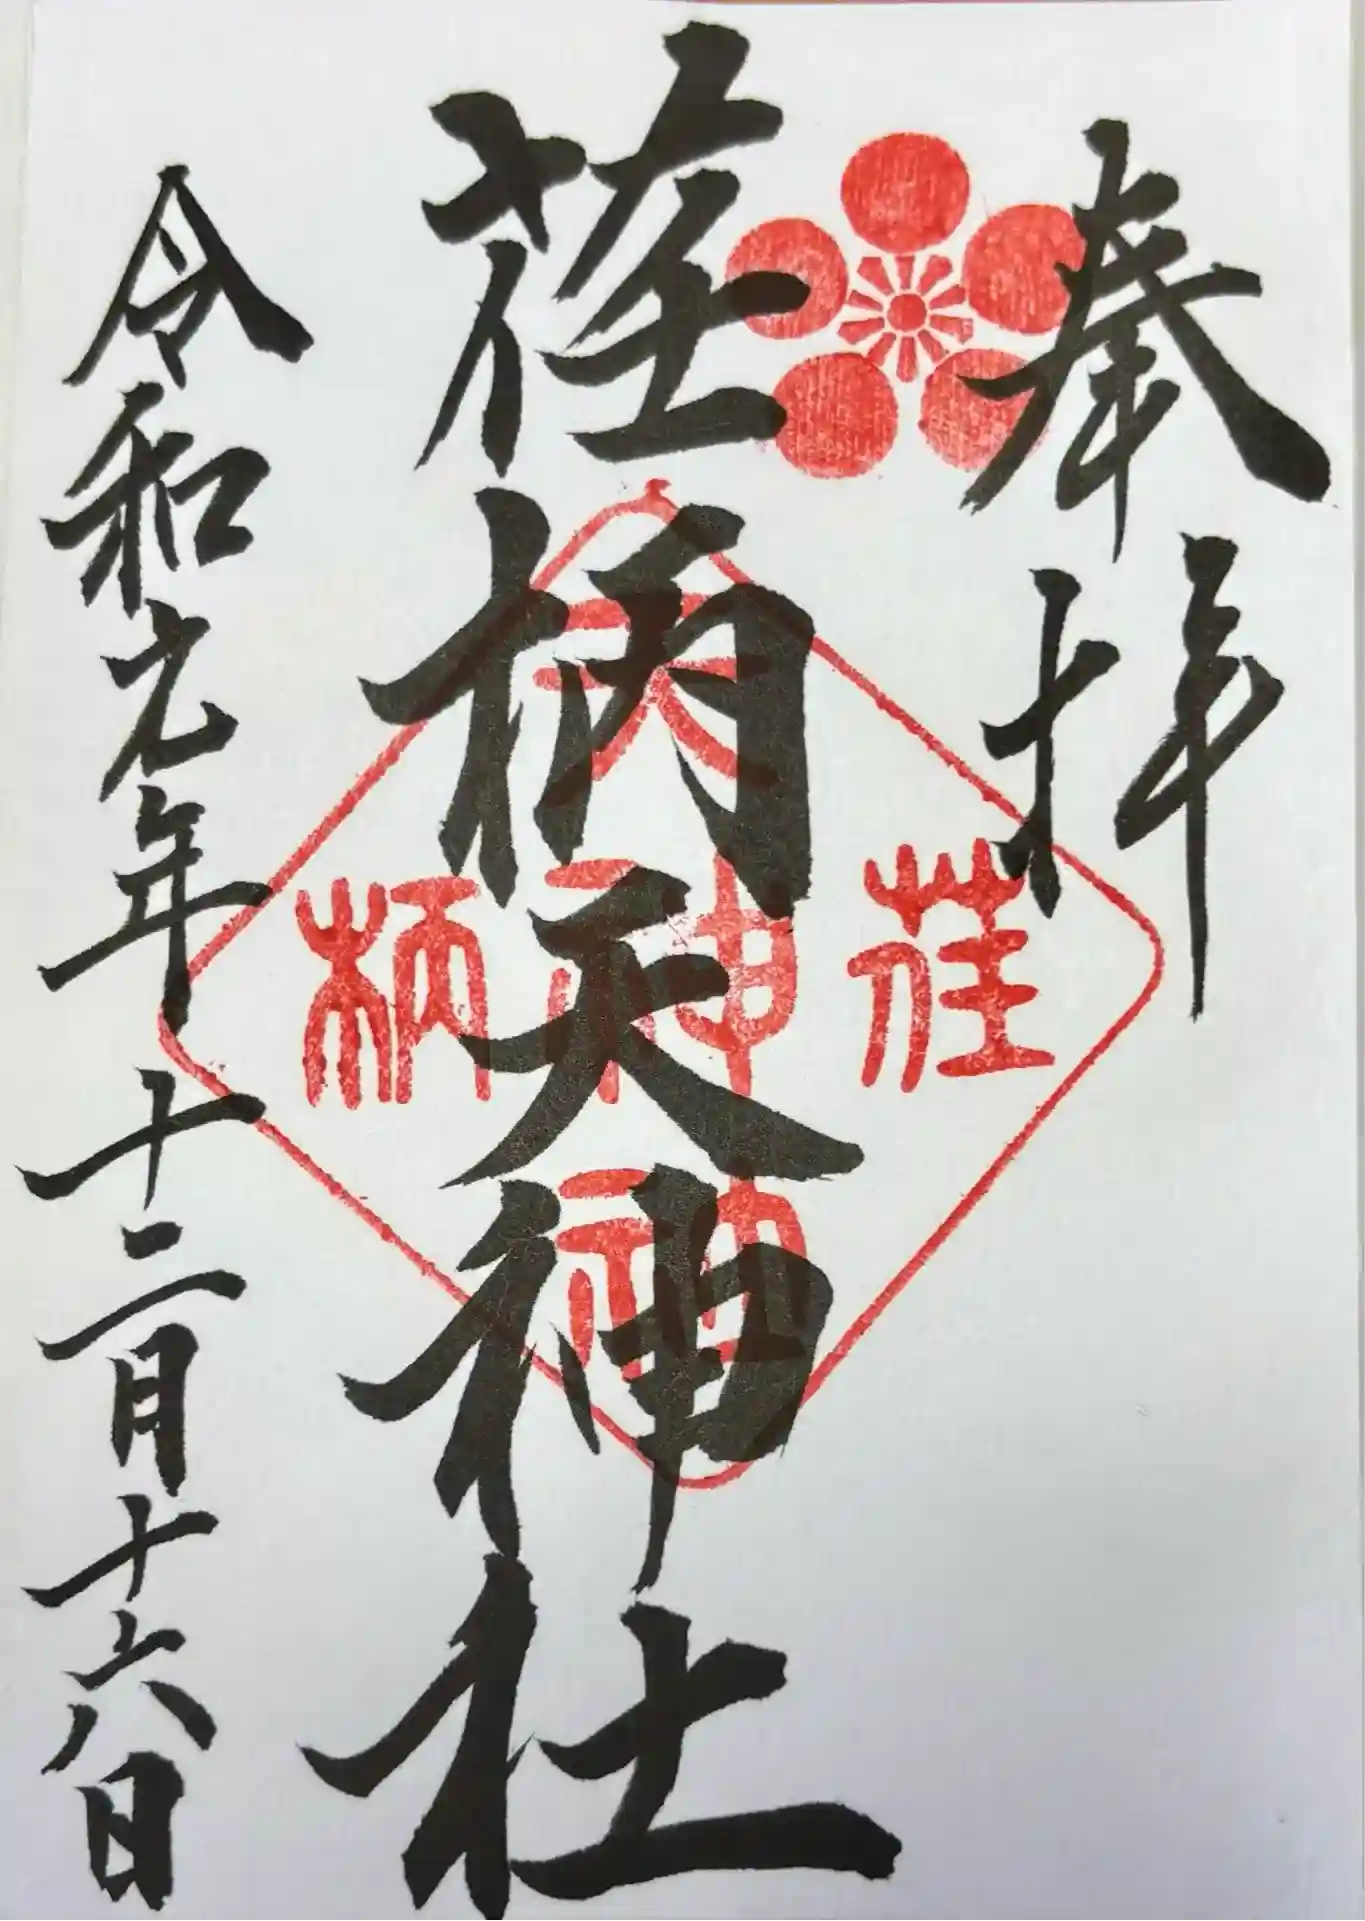 奉拝
荏柄天神社
令和元年十二月十六日
荏
天
神
神
柄